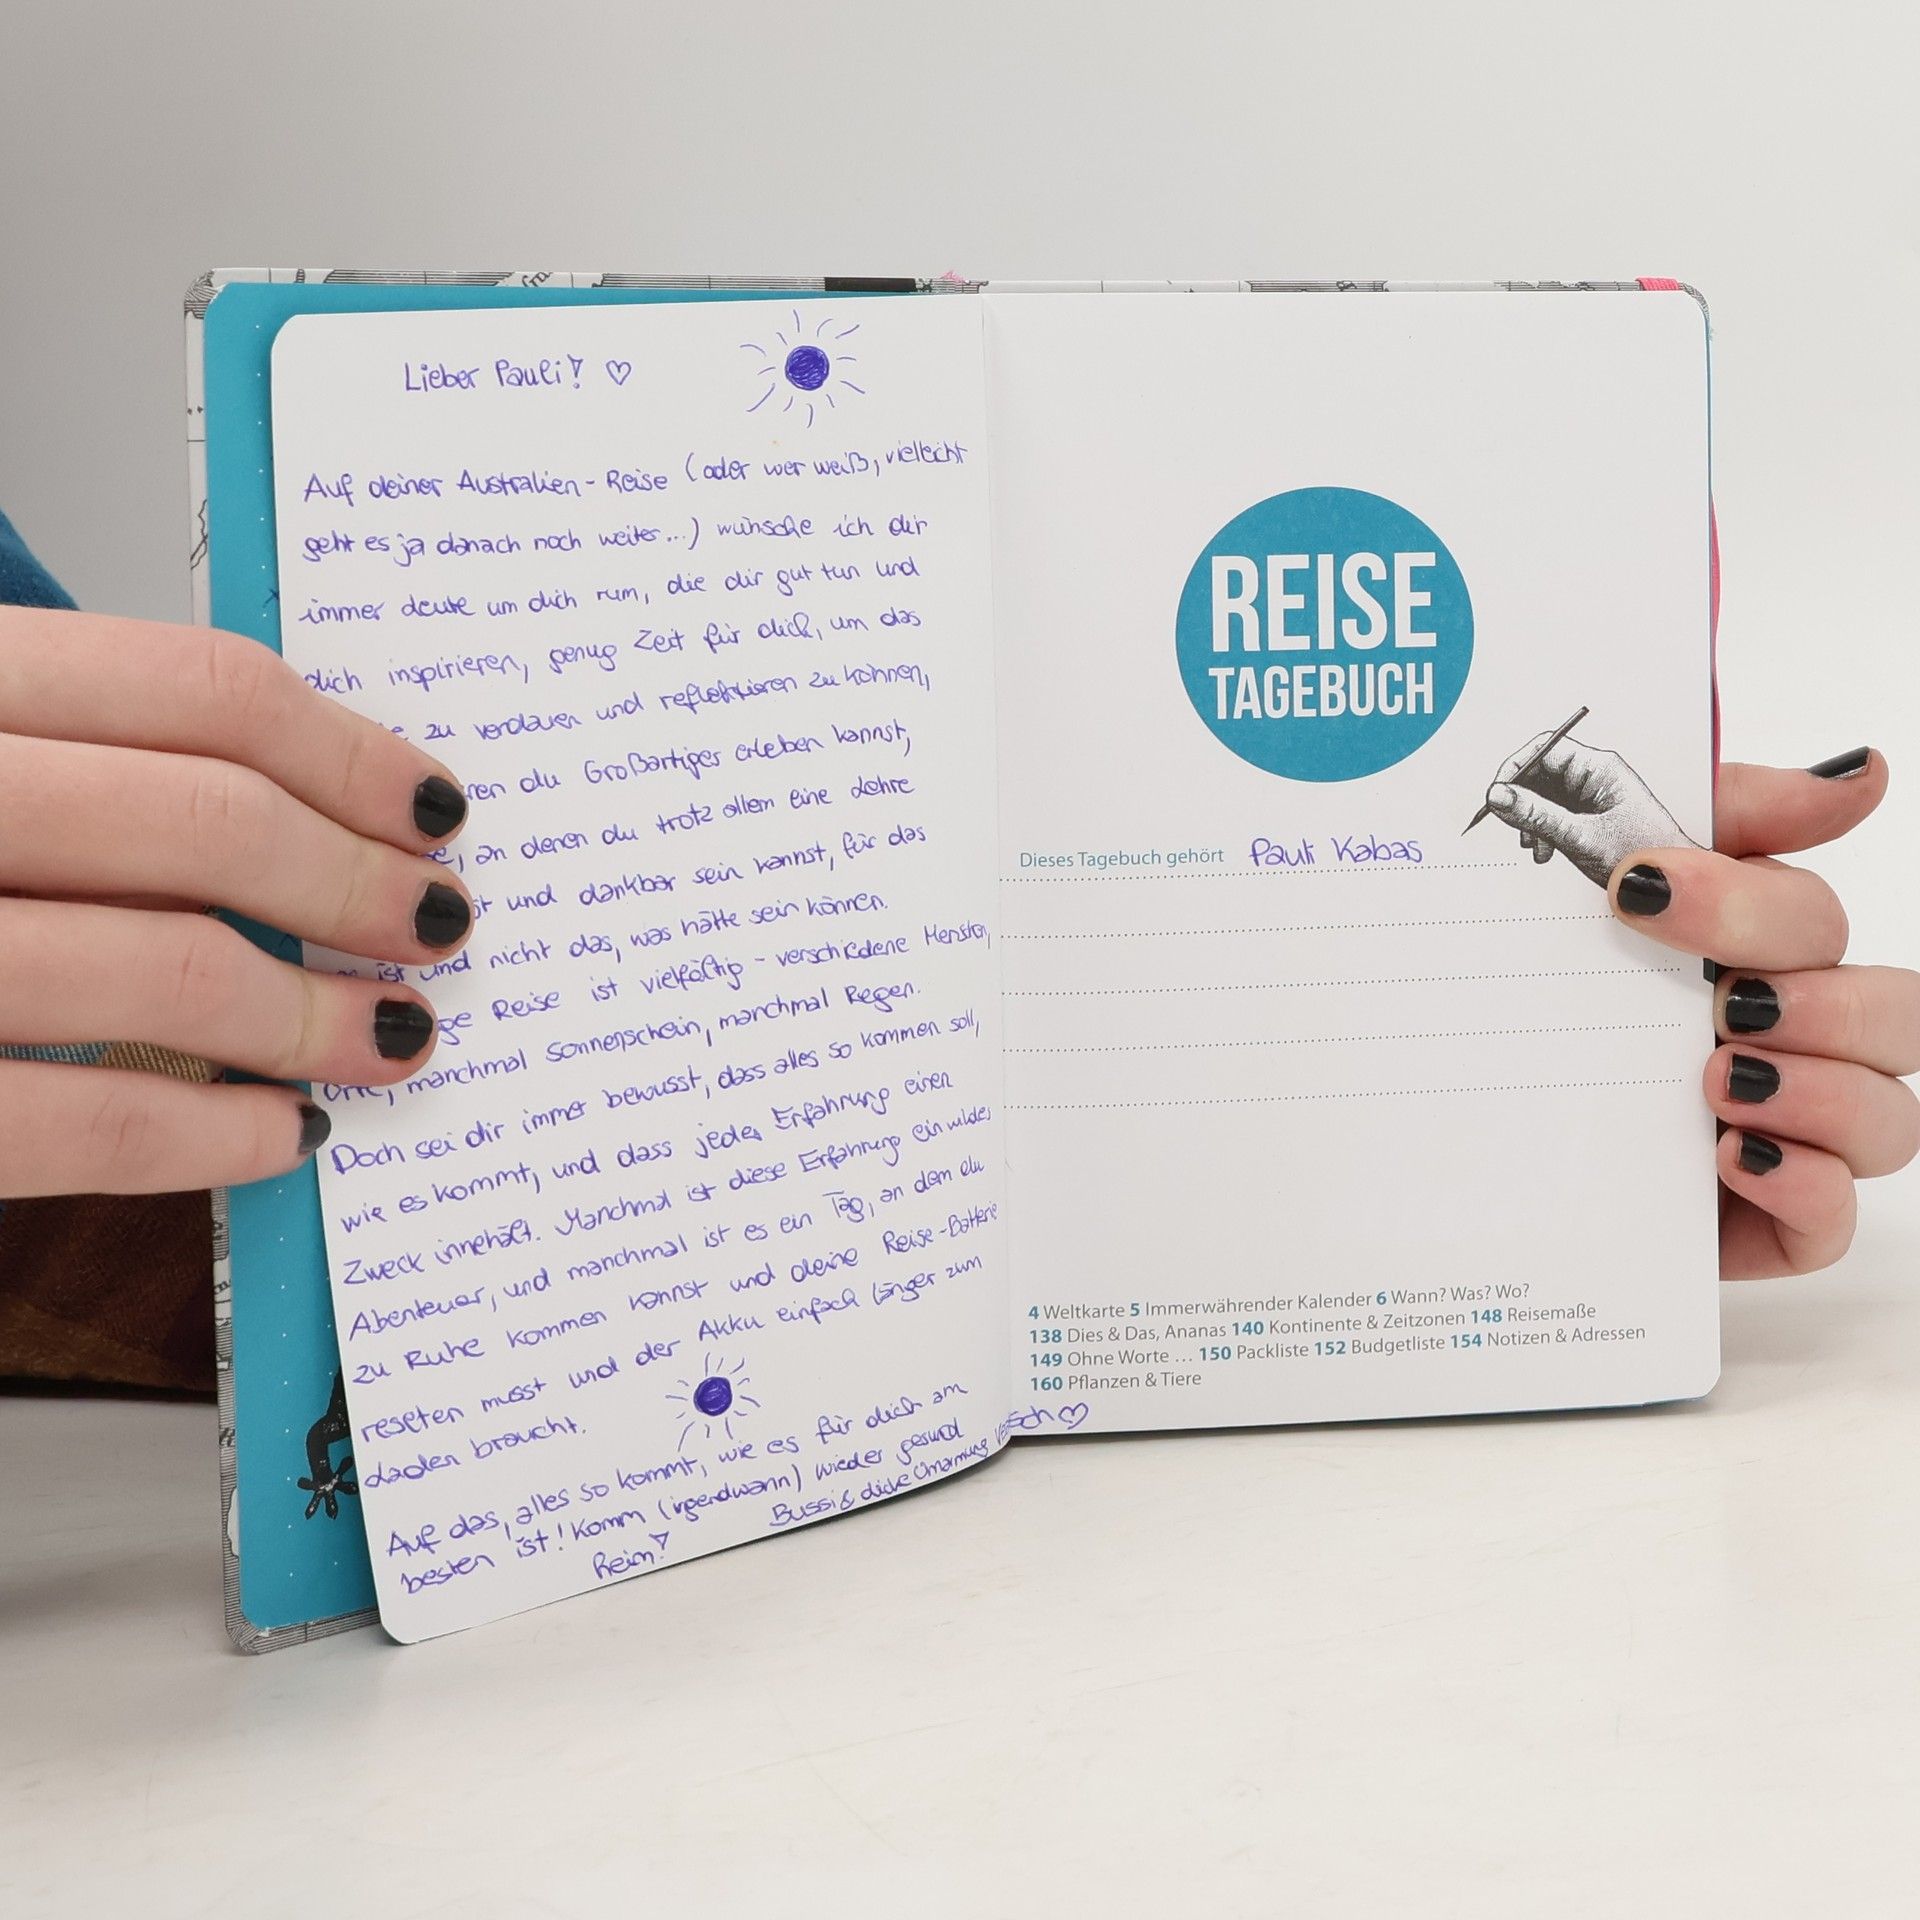 Lieber Pauli! ♡
Auf deiner Australien-Reise (oder wer weiß, vielleicht
geht es ja danach noch weiter...) wünsche ich dir
immer Leute um dich rum, die dir gut tun und
dich inspirieren, genug Zeit für dich, um das
zu verdauen und reflektieren zu können,
du Großartiges erleben kannst,
, an denen du trotz allem eine Lehre
und dankbar sein kannst, für das
ist und nicht das, was hätte sein können.
Reise ist vielfältig - verschiedene Menschen,
Orte, manchmal Sonnenschein, manchmal Regen.
Doch sei dir immer bewusst, dass alles so kommen soll,
wie es kommt, und dass jede Erfahrung einen
Zweck innehält. Manchmal ist diese Erfahrung ein wildes
Abenteuer, und manchmal ist es ein Tag, an dem du
zu Ruhe kommen kannst und deine Reise-Batterie
reseten musst und der Akku einfach länger zum
Laden braucht.
Auf das, alles so kommt, wie es für dich am
besten ist! Komm (irgendwann) wieder gesund
heim!
Bussi & dicke Umarmung
REISE
TAGEBUCH
Dieses Tagebuch gehört Pauli Kabas
4 Weltkarte 5 Immerwährender Kalender 6 Wann? Was? Wo?
138 Dies & Das, Ananas 140 Kontinente & Zeitzonen 148 Reisemaße
149 Ohne Worte ... 150 Packliste 152 Budgetliste 154 Notizen & Adressen
160 Pflanzen & Tiere